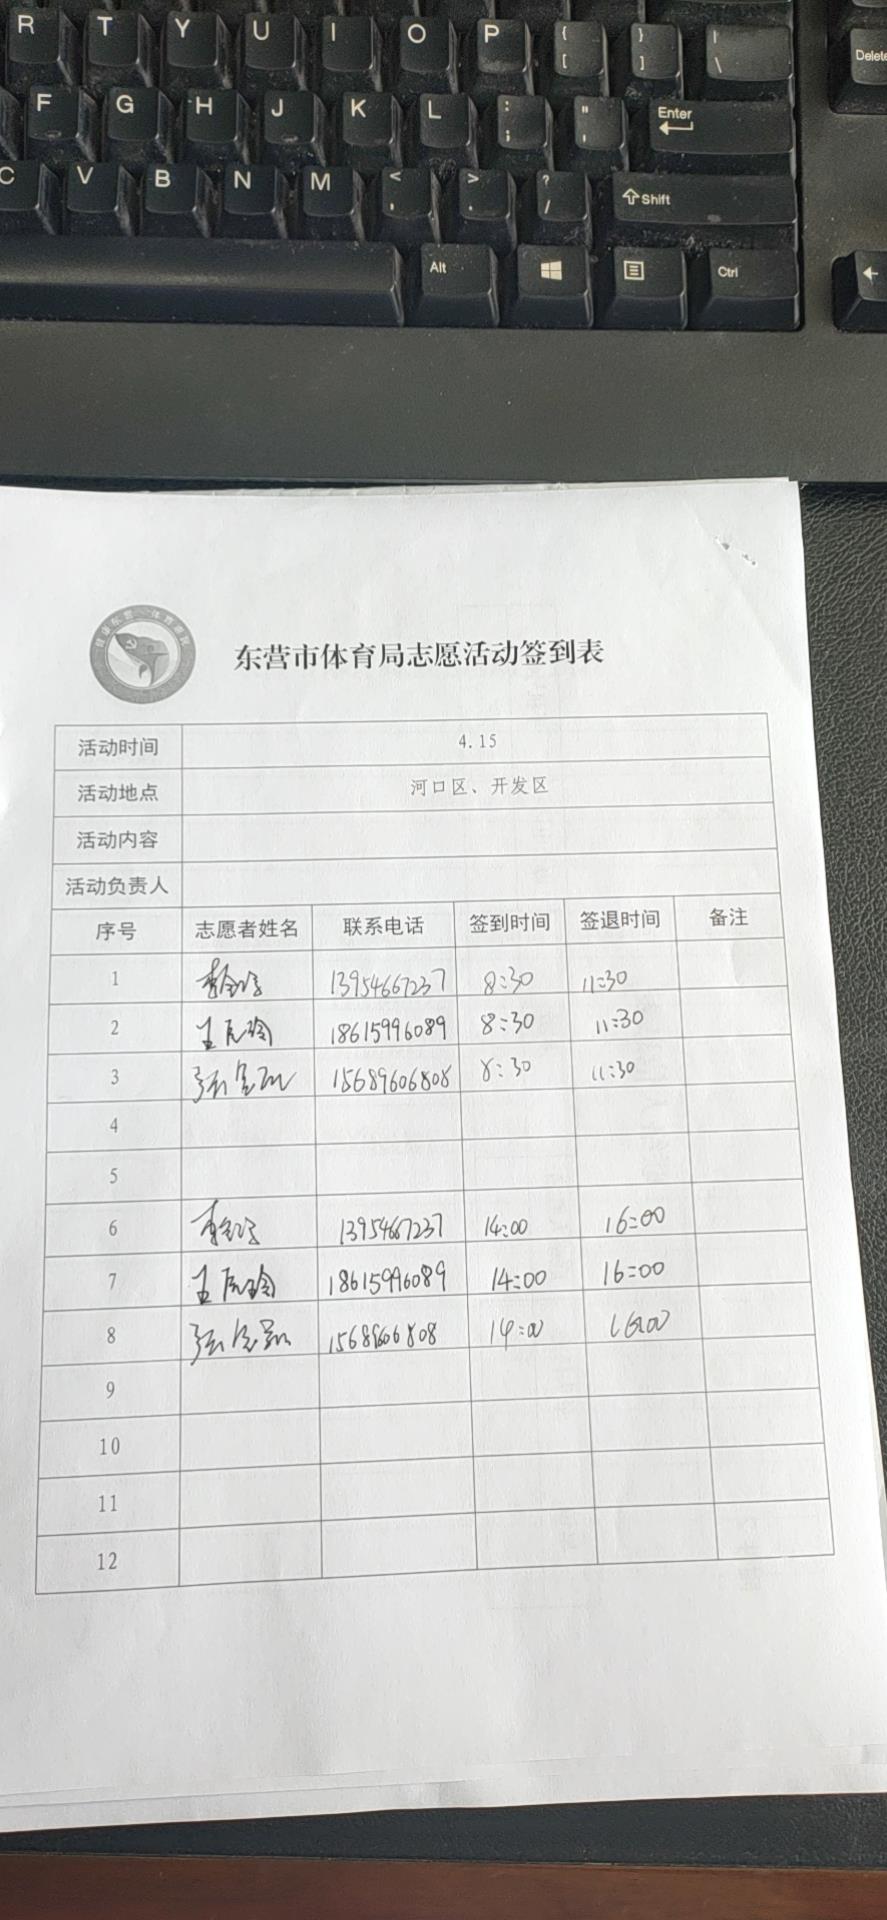 R T Y U I O P { [ } ] | \ Delete
F G H J K L : ; " ' Enter
C V B N M < , > . ? / Shift
Alt Ctrl
东营市体育局志愿活动签到表
活动时间 4.15
活动地点 河口区、开发区
活动内容
活动负责人
序号 志愿者姓名 联系电话 签到时间 签退时间 备注
1 13954667237 8:30 11:30
2 18615996089 8:30 11:30
3 15689606808 8:30 11:30
4
5
6 13954667237 14:00 16:00
7 18615996089 14:00 16:00
8 14:00 16:00
9
10
11
12